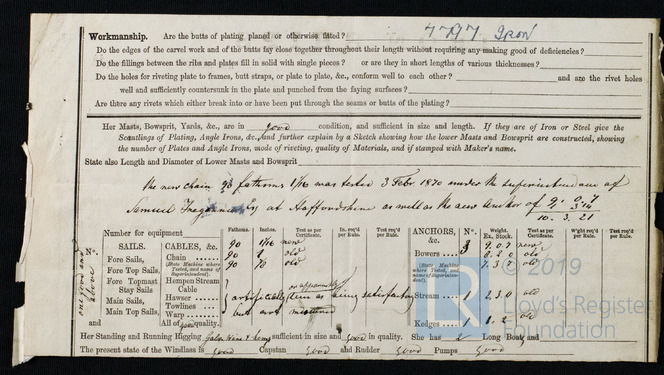 7797 Iron
Workmanship. Are the butts of plating planed or otherwise fitted?
Do the edges of the carvel work and of the butts fay close together throughout their length without requiring any making good of deficiencies?
Do the fillings between the ribs and plates fill in solid with single pieces? or are they in short lengths of various thicknesses?
Do the holes for riveting plate to frames, butt straps, or plate to plate, &c., conform well to each other? and are the rivet holes
well and sufficiently countersunk in the plate and punched from the faying surfaces?
Are there any rivets which either break into or have been put through the seams or butts of the plating?
Her Masts, Bowsprit, Yards, &c., are in good condition, and sufficient in size and length. If they are of Iron or Steel give the
Scantlings of Plating, Angle Irons, &c., and further explain by a Sketch showing how the lower Masts and Bowsprit are constructed, showing
the number of Plates and Angle Irons, mode of riveting, quality of Materials, and if stamped with Maker's name.
State also Length and Diameter of Lower Masts and Bowsprit
the new chain 90 fathoms 1 1/16 was tested 3 Febr. 1870 under the superintendance of
Samuel at Staffordshire as well as the new anchor of 9. 0. 7
10. 3. 21
Number for equipment
Fathoms. Inches. Test as per Certificate. In. req'd per Rule. Test req'd per Rule.
ANCHORS, &c. No. Weight. Ex. Stock. Test as per Certificate. W'ght req'd per Rule. Test req'd per Rule.
SAILS. CABLES, &c.
Fore Sails, Chain 90 1 1/16 new
Bowers 9. 0. 7 new
Fore Top Sails, (State Machine where Tested, and name of Superintendent). 90 old
(State Machine where Tested, and name of Superintendent). old
Fore Topmast Stay Sails Hempen Stream Cable
Main Sails, Hawser
Stream 1 2. 3. 0 old
Main Top Sails, Towlines
Warp but not
and All of good quality.
Kedges 1 old
Her Standing and Running Rigging hemp sufficient in size and good in quality. She has 2 Long Boat and
The present state of the Windlass is good Capstan good and Rudder good Pumps good
© 2019
Lloyd's Register
Foundation
LR